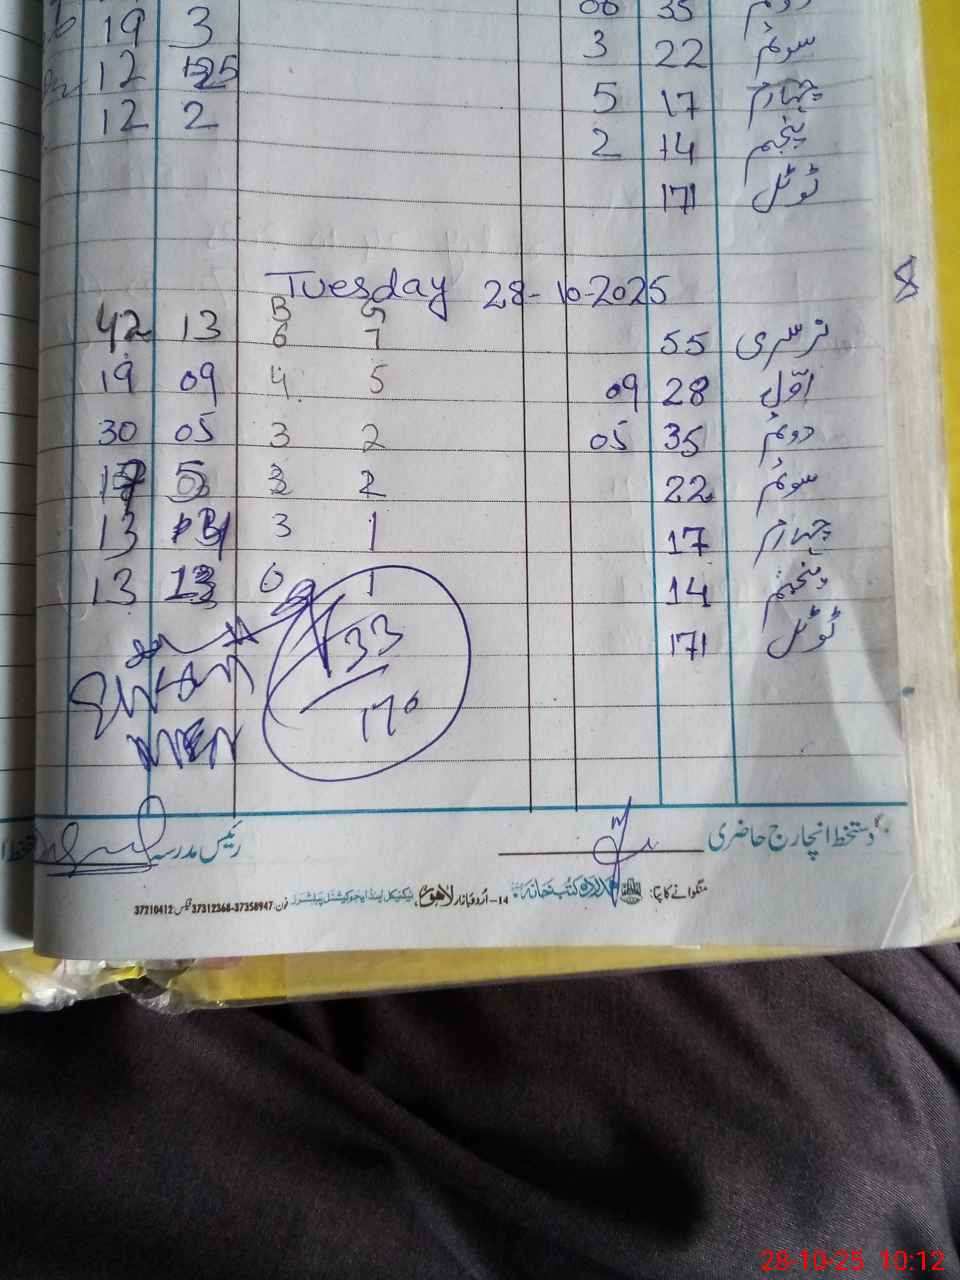 06 35 دوئم
19 3 3 22 سوئم
12 5 17 چہارم
12 2 2 14 پنجم
171 ٹوٹل
Tuesday 28-10-2025
B G
42 13 6 7 55 نرسری
19 09 4 5 09 28 اوّل
30 05 3 2 05 35 دوئم
5 3 2 22 سوئم
13 3 1 17 چہارم
13 13 0 1 14 پنجم
171 ٹوٹل
33
170
8
دستخط انچارج حاضری
رئیس مدرسہ
منگوانے کا پتا: اردو کتب خانہ 14-اُردو بازار لاہور ٹیکنیکل اینڈ ایجوکیشنل پبلشرز فون: 37312368-37358947 فیکس: 37210412
28-10-25 10:12